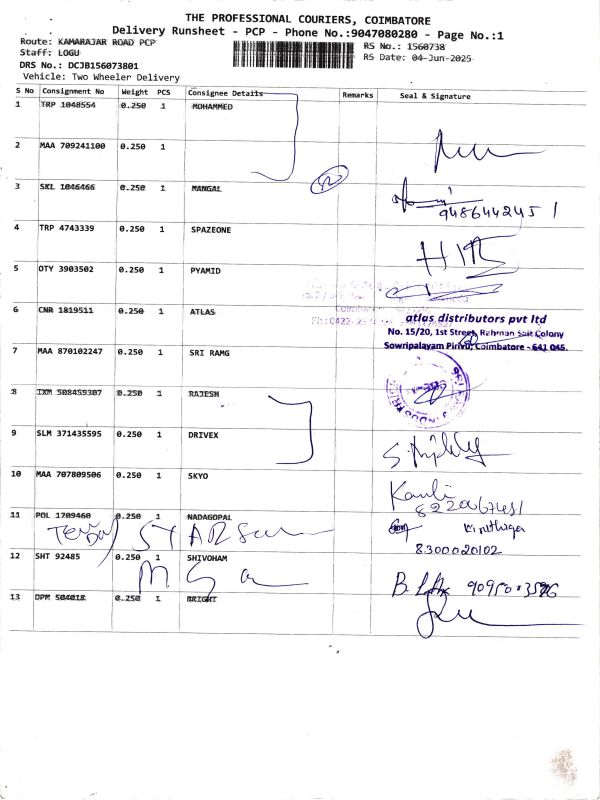 THE PROFESSIONAL COURIERS, COIMBATORE
Delivery Runsheet - PCP - Phone No.:9047080280 - Page No.:1
Route: KAMARAJAR ROAD PCP
RS No.: 1560738
Staff: LOGU
RS Date: 04-Jun-2025
DRS No.: DCJB156073801
Vehicle: Two Wheeler Delivery
S No Consignment No Weight PCS Consignee Details Remarks Seal & Signature
1 TRP 1048554 0.250 1 MOHAMMED
2 MAA 709241100 0.250 1
3 SKL 1046466 0.250 1 MANGAL
9486442451
4 TRP 4743339 0.250 1 SPAZEONE
5 OTY 3903502 0.250 1 PYAMID
6 CNR 1819511 0.250 1 ATLAS
atlas distributors pvt ltd
No. 15/20, 1st Street, Rahman Sait Colony
Sowripalayam Pirivu, Coimbatore - 641 045.
7 MAA 870102247 0.250 1 SRI RAMG
8 IXM 508459307 0.250 1 RAJESH
9 SLM 371435595 0.250 1 DRIVEX
10 MAA 707809506 0.250 1 SKYO
11 POL 1709460 0.250 1 NADAGOPAL
8300020102
12 SHT 92485 0.250 1 SHIVOHAM
13 DPM 504018 0.250 1 BRIGHT